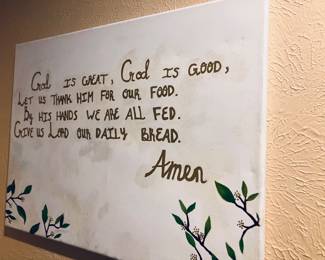 God is great, God is good,
Let us thank Him for our food.
By His hands we are all fed.
Give us Lord our daily bread.
Amen